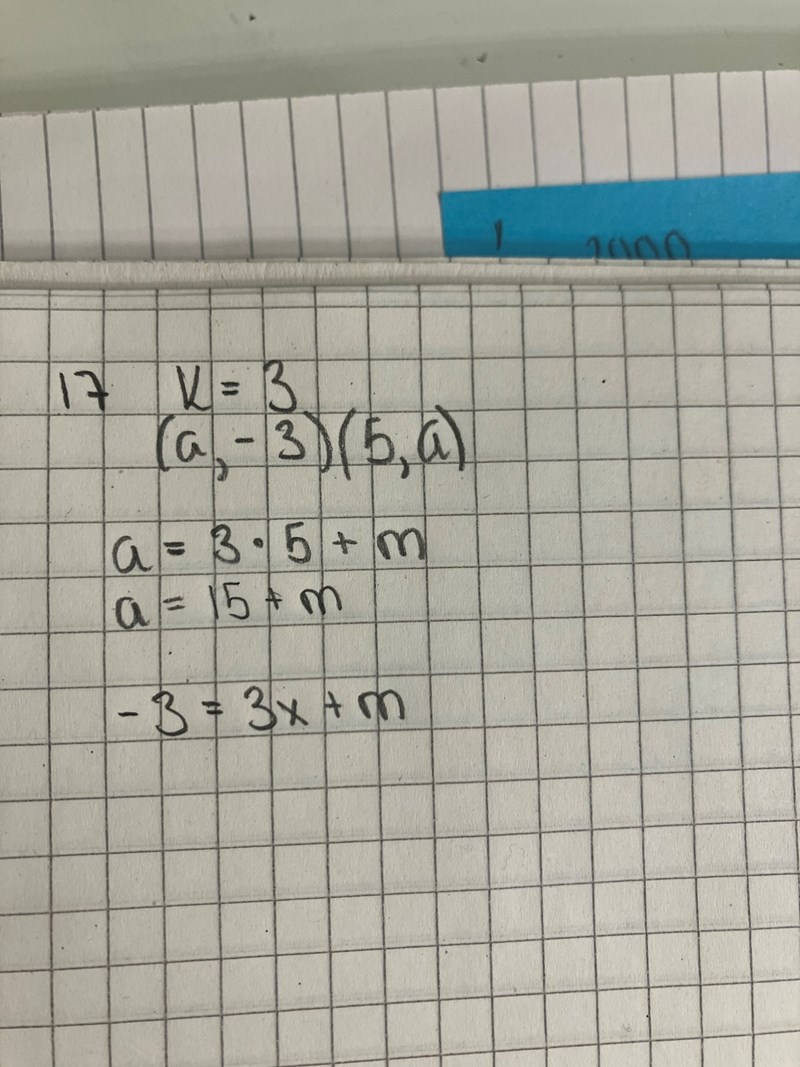 17 K = 3
(a, -3)(5, a)
a = 3 · 5 + m
a = 15 + m
-3 = 3x + m